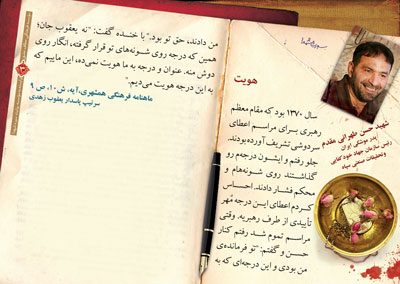 شهید حسن طهرانی مقدم
پدر موشکی ایران
رئیس سازمان جهاد خودکفایی
و تحقیقات صنعتی سپاه
هویت
سال ۱۳۷۰ بود که مقام معظم
رهبری برای مراسم اعطای
سردوشی تشریف آورده بودند.
جلو رفتم و ایشون درجه‌م رو
گذاشتند روی شونه‌هام و
محکم فشار دادند. احساس
کردم اعطای این درجه مُهر
تأییدی از طرف رهبریه. وقتی
مراسم تموم شد رفتم کنار
حسن و گفتم: "تو فرمانده‌ی
من بودی و این درجه‌ای که به
من دادند، حق تو بود." با خنده گفت: "نه یعقوب جان؛
همین که درجه روی شونه‌های تو قرار گرفته، انگار روی
دوش منه. عنوان و درجه به ما هویت نمی‌ده، این ماییم که
به این درجه هویت می‌دیم."
ماهنامه فرهنگی همشهری، آیه، ش ۱۰، ص ۹
سرتیپ پاسدار یعقوب زهدی